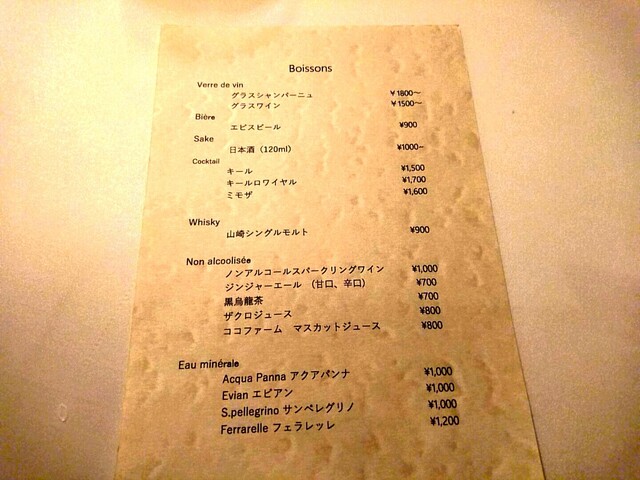 Boissons
Verre de vin
グラスシャンパーニュ ¥1800～
グラスワイン ¥1500～
Bière
エビスビール ¥900
Sake
日本酒（120ml） ¥1000~
Cocktail
キール ¥1,500
キールロワイヤル ¥1,700
ミモザ ¥1,600
Whisky
山崎シングルモルト ¥900
Non alcoolisée
ノンアルコールスパークリングワイン ¥1,000
ジンジャーエール （甘口、辛口） ¥700
黒烏龍茶 ¥700
ザクロジュース ¥800
ココファーム　マスカットジュース ¥800
Eau minérale
Acqua Panna アクアパンナ ¥1,000
Evian エビアン ¥1,000
S.pellegrino サンペレグリノ ¥1,000
Ferrarelle フェラレッレ ¥1,200